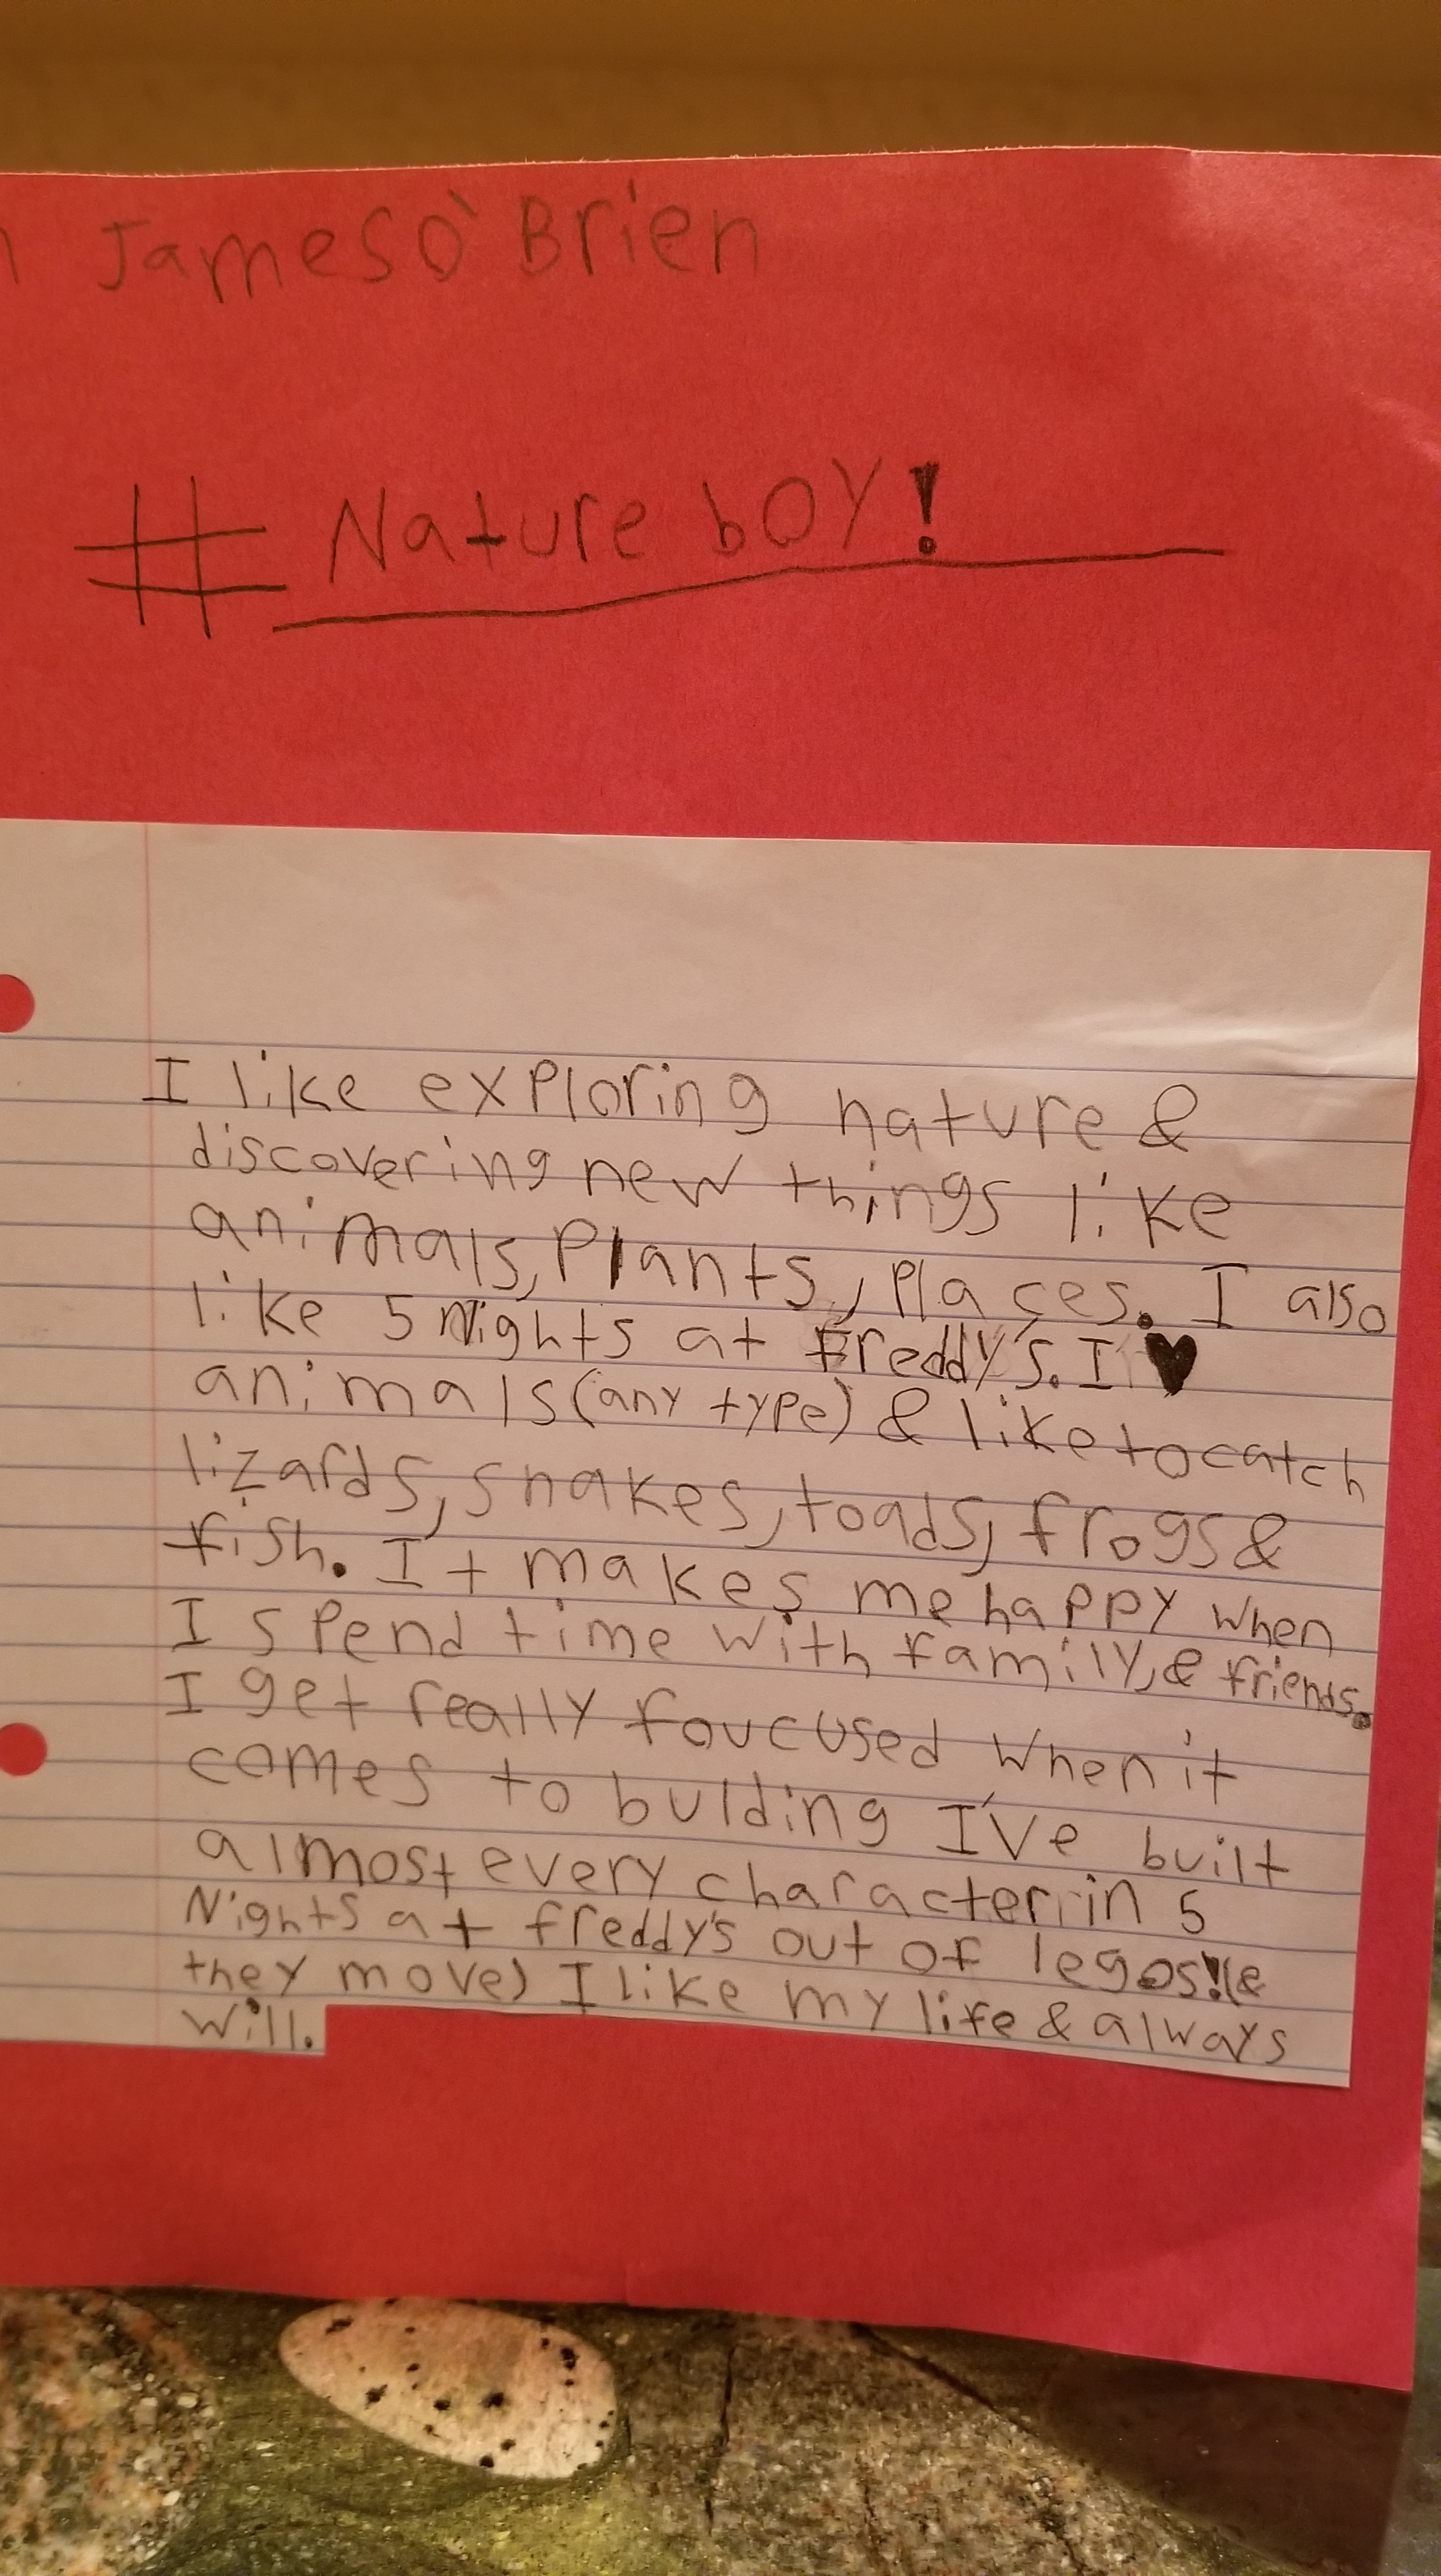 n James O'Brien
# Nature bOY!
I like exploring nature &
discovering new things like
animals, Plants, places. I also
like 5 Nights at Freddy's. I ♥
animals (any type) & like to catch
lizards, snakes, toads, frogs &
fish. It makes me happy when
I spend time with family, & friends.
I get really foucused when it
comes to bulding I've built
almost every character in 5
Nights at freddy's out of legos! (&
they move) I like my life & always
will.